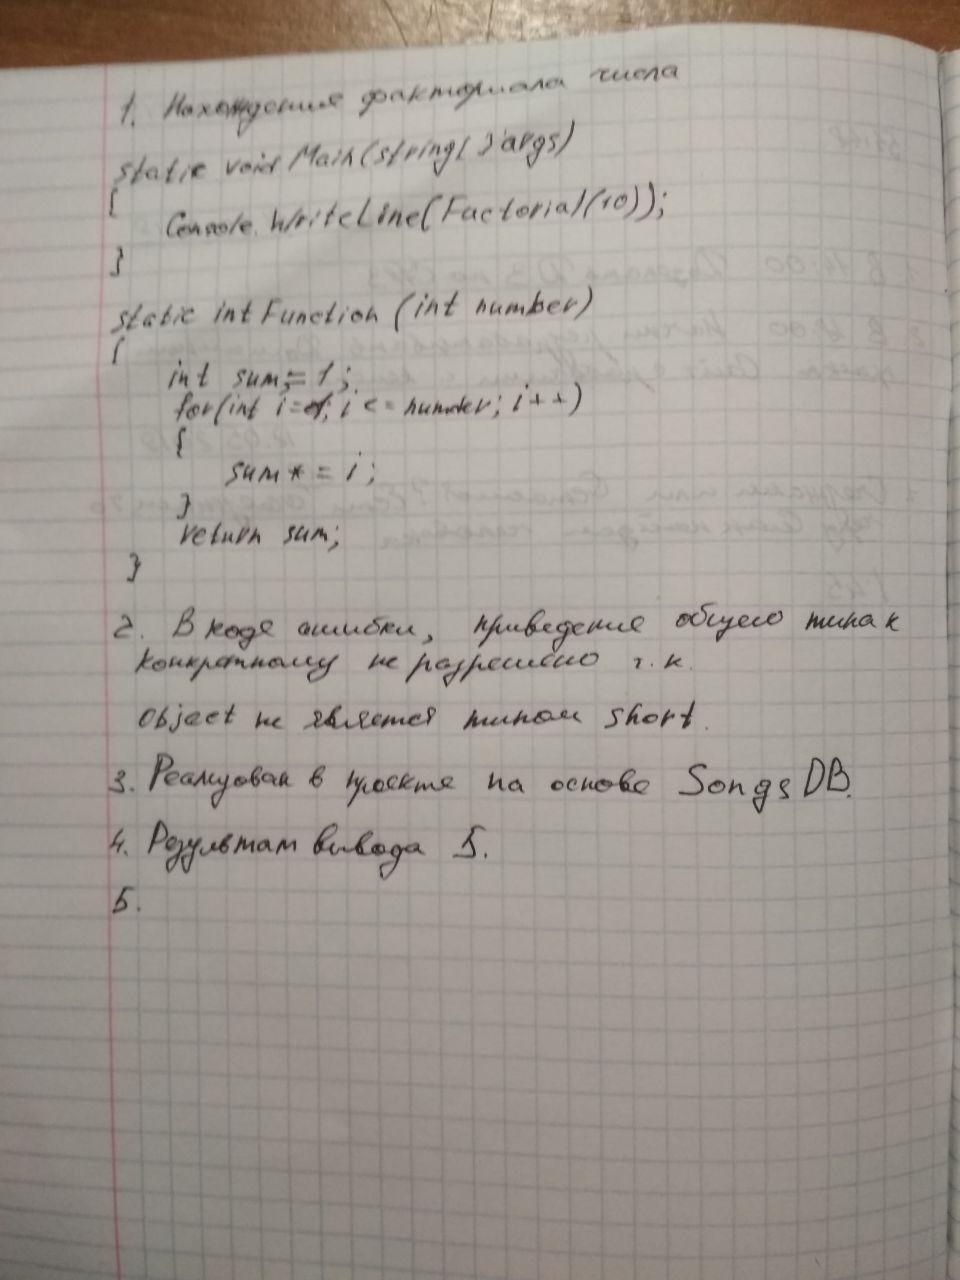 1. Нахождение факториала числа
static void Main(string[] args)
{
Console.WriteLine(Factorial(10));
}
static int Function (int number)
{
int sum = 1;
for(int i=1; i <= number; i++)
{
sum *= i;
}
return sum;
}
2. В коде ошибки, приведение общего типа к
конкретному не разрешено т.к.
object не является типом short.
3. Реализован в проекте на основе SongsDB.
4. Результат вывода 5.
5.